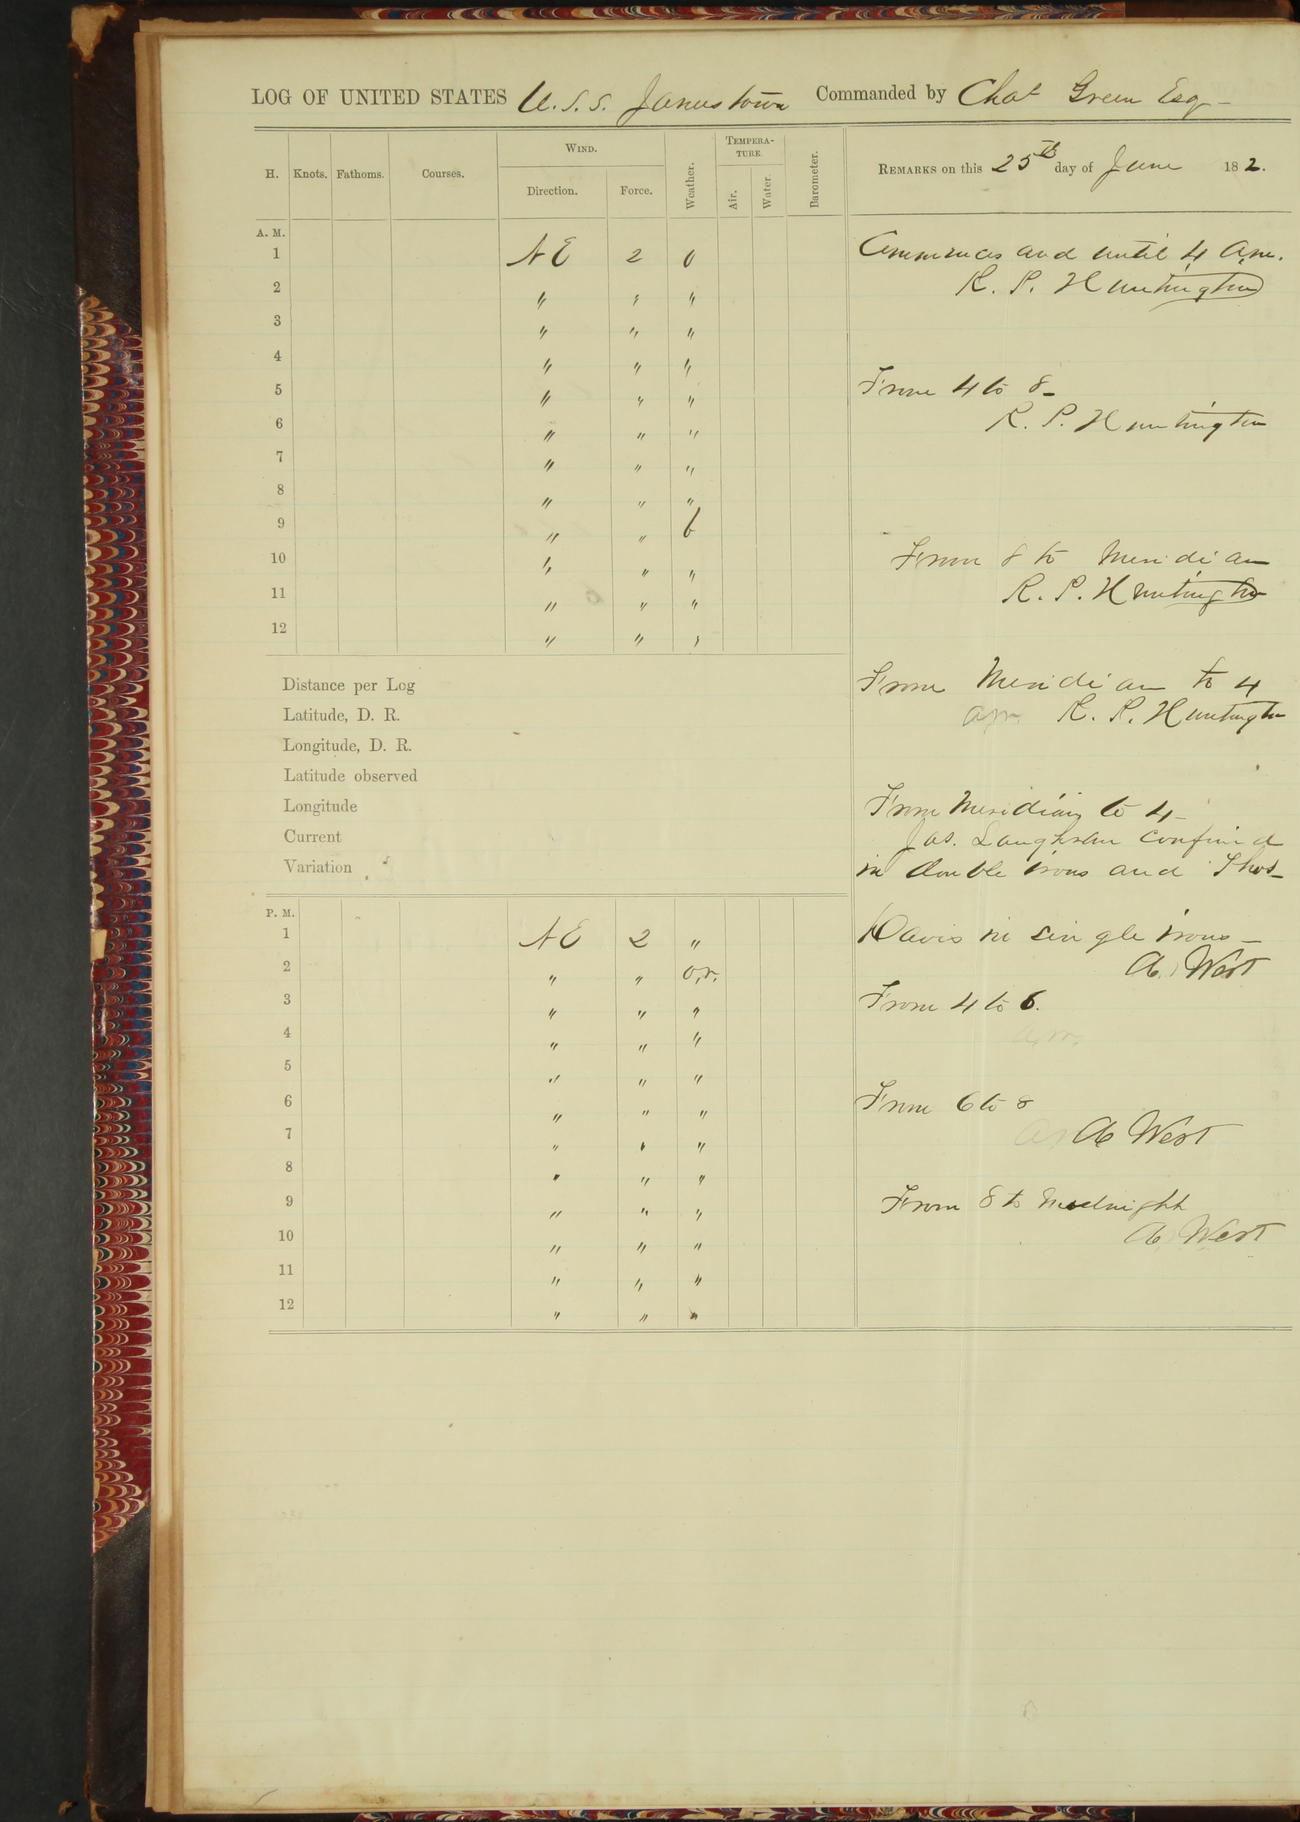 LOG OF UNITED STATES U.S.S. Jamestown Commanded by Chas Green Esq
H. Knots. Fathoms. Courses. WIND. Direction. Force. Weather. TEMPERATURE. Air. Water. Barometer.
REMARKS on this 25th day of June 182.
A. M.
1 NE 2 o
2 " " "
3 " " "
4 " " "
5 " " "
6 " " "
7 " " "
8 " " "
9 " " b
10 " " "
11 " " "
12 " " "
Commences and until 4 a.m.
R. P. Huntington
From 4 to 8
R. P. Huntington
From 8 to Meridian
R. P. Huntington
Distance per Log
Latitude, D. R.
Longitude, D. R.
Latitude observed
Longitude
Current
Variation
From Meridian to 4
R. P. Huntington
From Meridian to 4
Jas. Laughran confined
in double irons and Thos
P. M.
1 NE 2 "
2 " " o,r.
3 " " "
4 " " "
5 " " "
6 " " "
7 " " "
8 " " "
9 " " "
10 " " "
11 " " "
12 " " "
Davis in single irons
A. West
From 4 to 6.
From 6 to 8
A West
From 8 to Midnight
A West